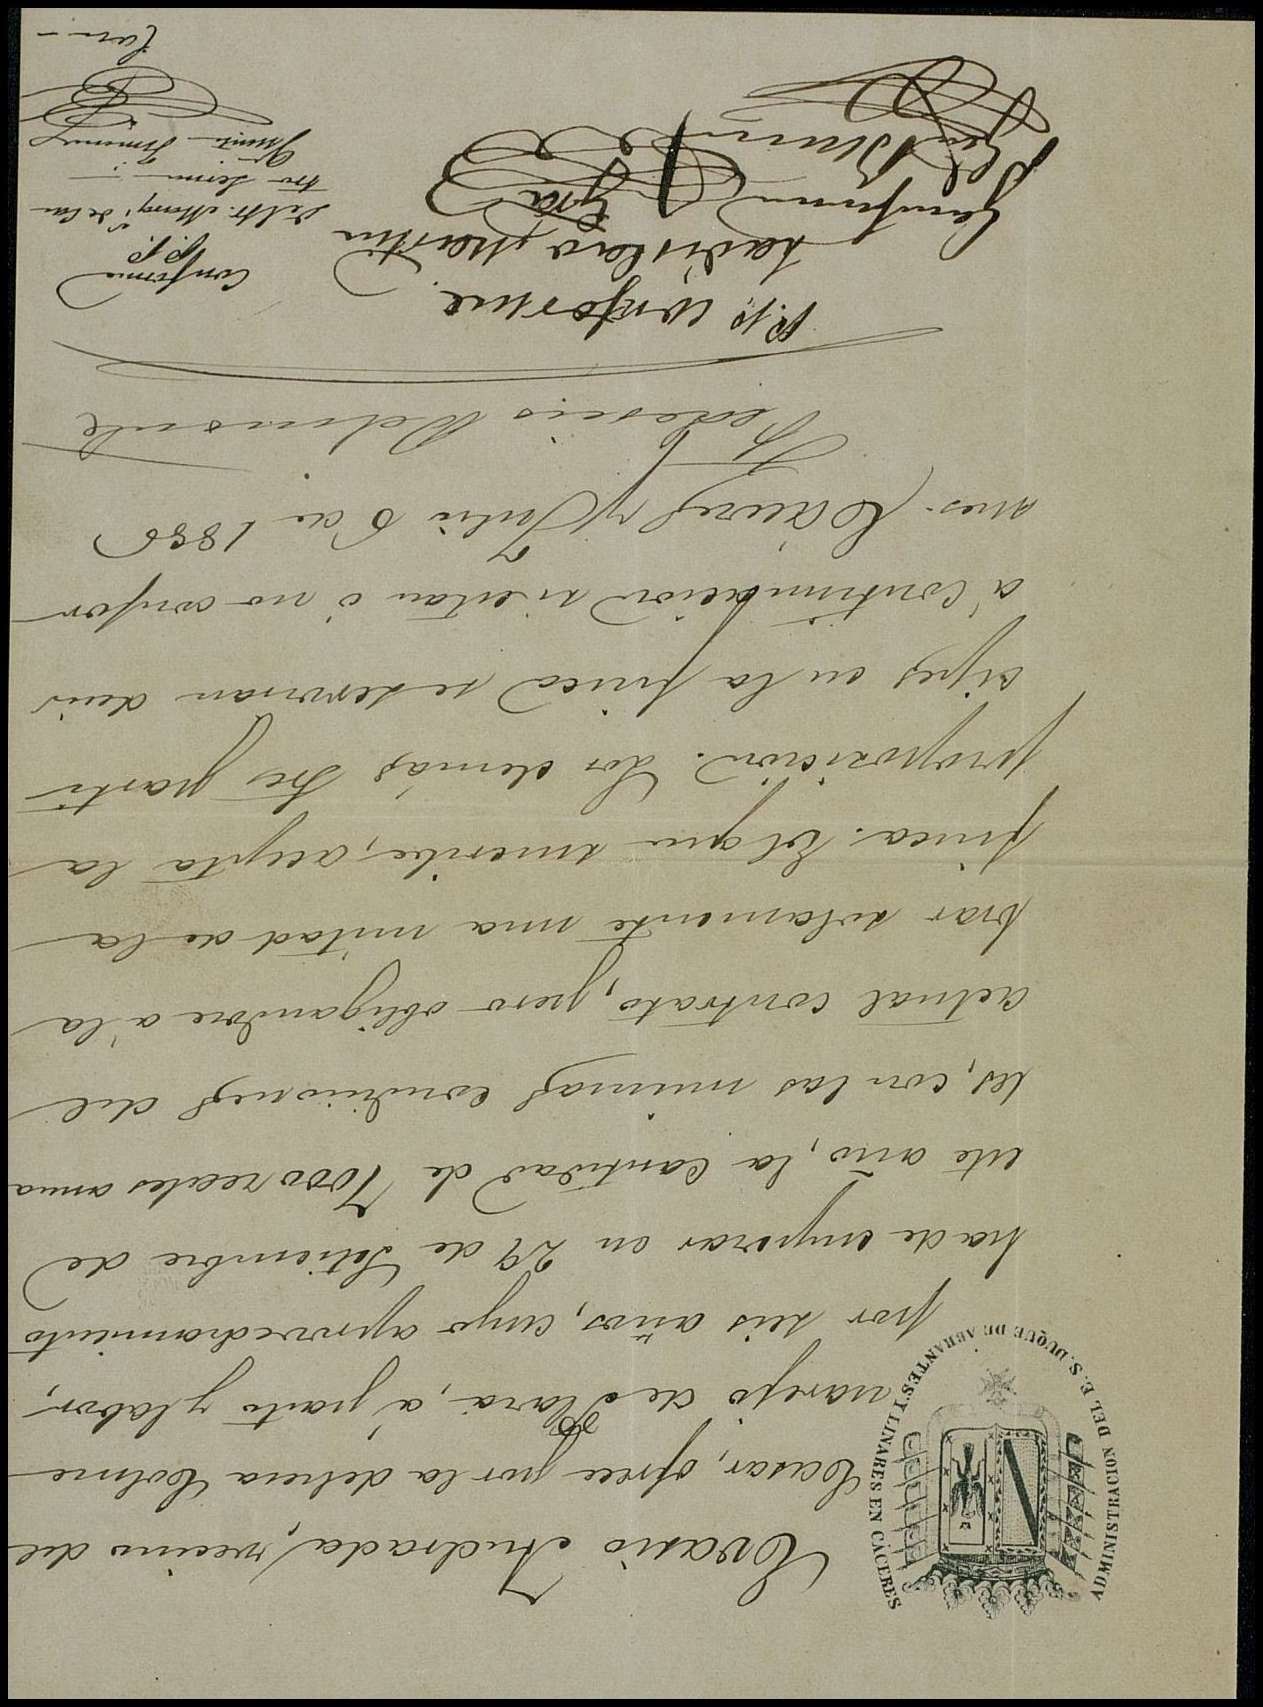 ADMINISTRACION DEL E. S. DUQUE DE ABRANTES Y LINARES EN CÁCERES
Evasio Andrada, vecino del
Casar, ofrece por la dehesa Colme
narejo de Alara, á pasto y labor,
por seis años, cuyo aprovechamiento
ha de empezar en 29 de Setiembre de
este año, la cantidad de 7000 reales anua
les, con las mismas condiciones del
actual contrato, pero obligandose á la
brar solamente una mitad de la
finca. El que suscribe, acepta la
proposicion. Los demás tres parti
cipes en la finca se serviran decir
á continuacion si estan ó no confor
mes. Cáceres y Julio 6 de 1886
Belmonte
P.p. conforme.
Ladislao Martin
Gra
Conforme
Conforme
p.p.
del Sr. Marq.s de Cas
tro Serna
Jimenez